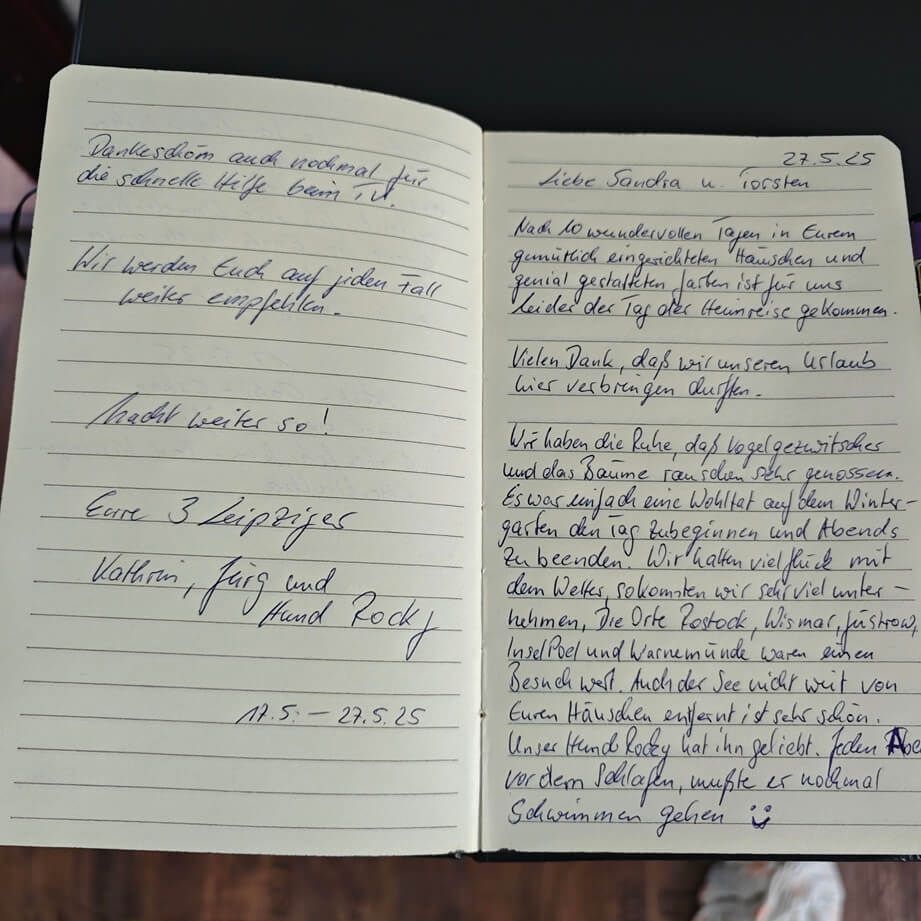 Dankeschön auch nochmal für
die schnelle Hilfe beim TV.
Wir werden Euch auf jeden Fall
weiter empfehlen.
Macht weiter so!
Eure 3 Leipziger
Kathrin, Jürg und
Hund Rocky
17.5. – 27.5.25
27.5.25
Liebe Sandra u. Torsten
Nach 10 wundervollen Tagen in Eurem
gemütlich eingerichteten Häuschen und
genial gestalteten Garten ist für uns
leider der Tag der Heimreise gekommen.
Vielen Dank, daß wir unseren Urlaub
hier verbringen durften.
Wir haben die Ruhe, daß Vogelgezwitscher
und das Bäume rauschen sehr genossen.
Es war einfach eine Wohltat auf dem Winter-
garten den Tag zubeginnen und Abends
zu beenden. Wir hatten viel Glück mit
dem Wetter, so konnten wir sehr viel unter-
nehmen, Die Orte Rostock, Wismar, Güstrow,
Insel Poel und Warnemünde waren einen
Besuch wert. Auch der See nicht weit von
Euren Häuschen entfernt ist sehr schön.
Unser Hund Rocky hat ihn geliebt. Jeden Abe
vor dem Schlafen, mußte er nochmal
Schwimmen gehen